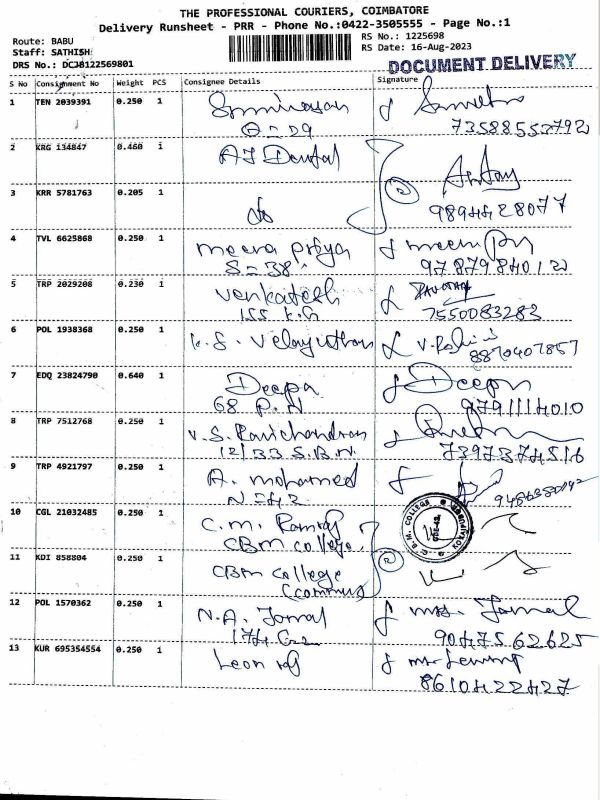 THE PROFESSIONAL COURIERS, COIMBATORE
Delivery Runsheet - PRR - Phone No.:0422-3505555 - Page No.:1
Route: BABU
Staff: SATHISH
DRS No.: DCJB122569801
RS No.: 1225698
RS Date: 16-Aug-2023
DOCUMENT DELIVERY
S No Consignment No Weight PCS Consignee Details Signature
1 TEN 2039391 0.250 1 Srinivasan
73588553792
2 KRG 134847 0.460 1 AJ Dental
3 KRR 5781763 0.205 1 do
9894428077
4 TVL 6625868 0.250 1 meera priya
S=38
9787984012
5 TRP 2029208 0.230 1 Venkatesh
155 K.G
7550083283
6 POL 1938368 0.250 1 K.S. Velayuthan
8870407857
7 EDQ 23824790 0.640 1 Deepa Deepa
68 P.N 9791114010
8 TRP 7512768 0.250 1 V.S. Ravichandran
12/33 S.B.N. 7397374516
9 TRP 4921797 0.250 1 A. mohamed
N=42
10 CGL 21032485 0.250 1 C.M. Ramraj
CBM college
C. B. M. COLLEGE
11 KDI 858804 0.250 1 CBM College
12 POL 1570362 0.250 1 N.A. Jamal mrs. Jamal
9047562625
13 KUR 695354554 0.250 1 Leon
8610422427